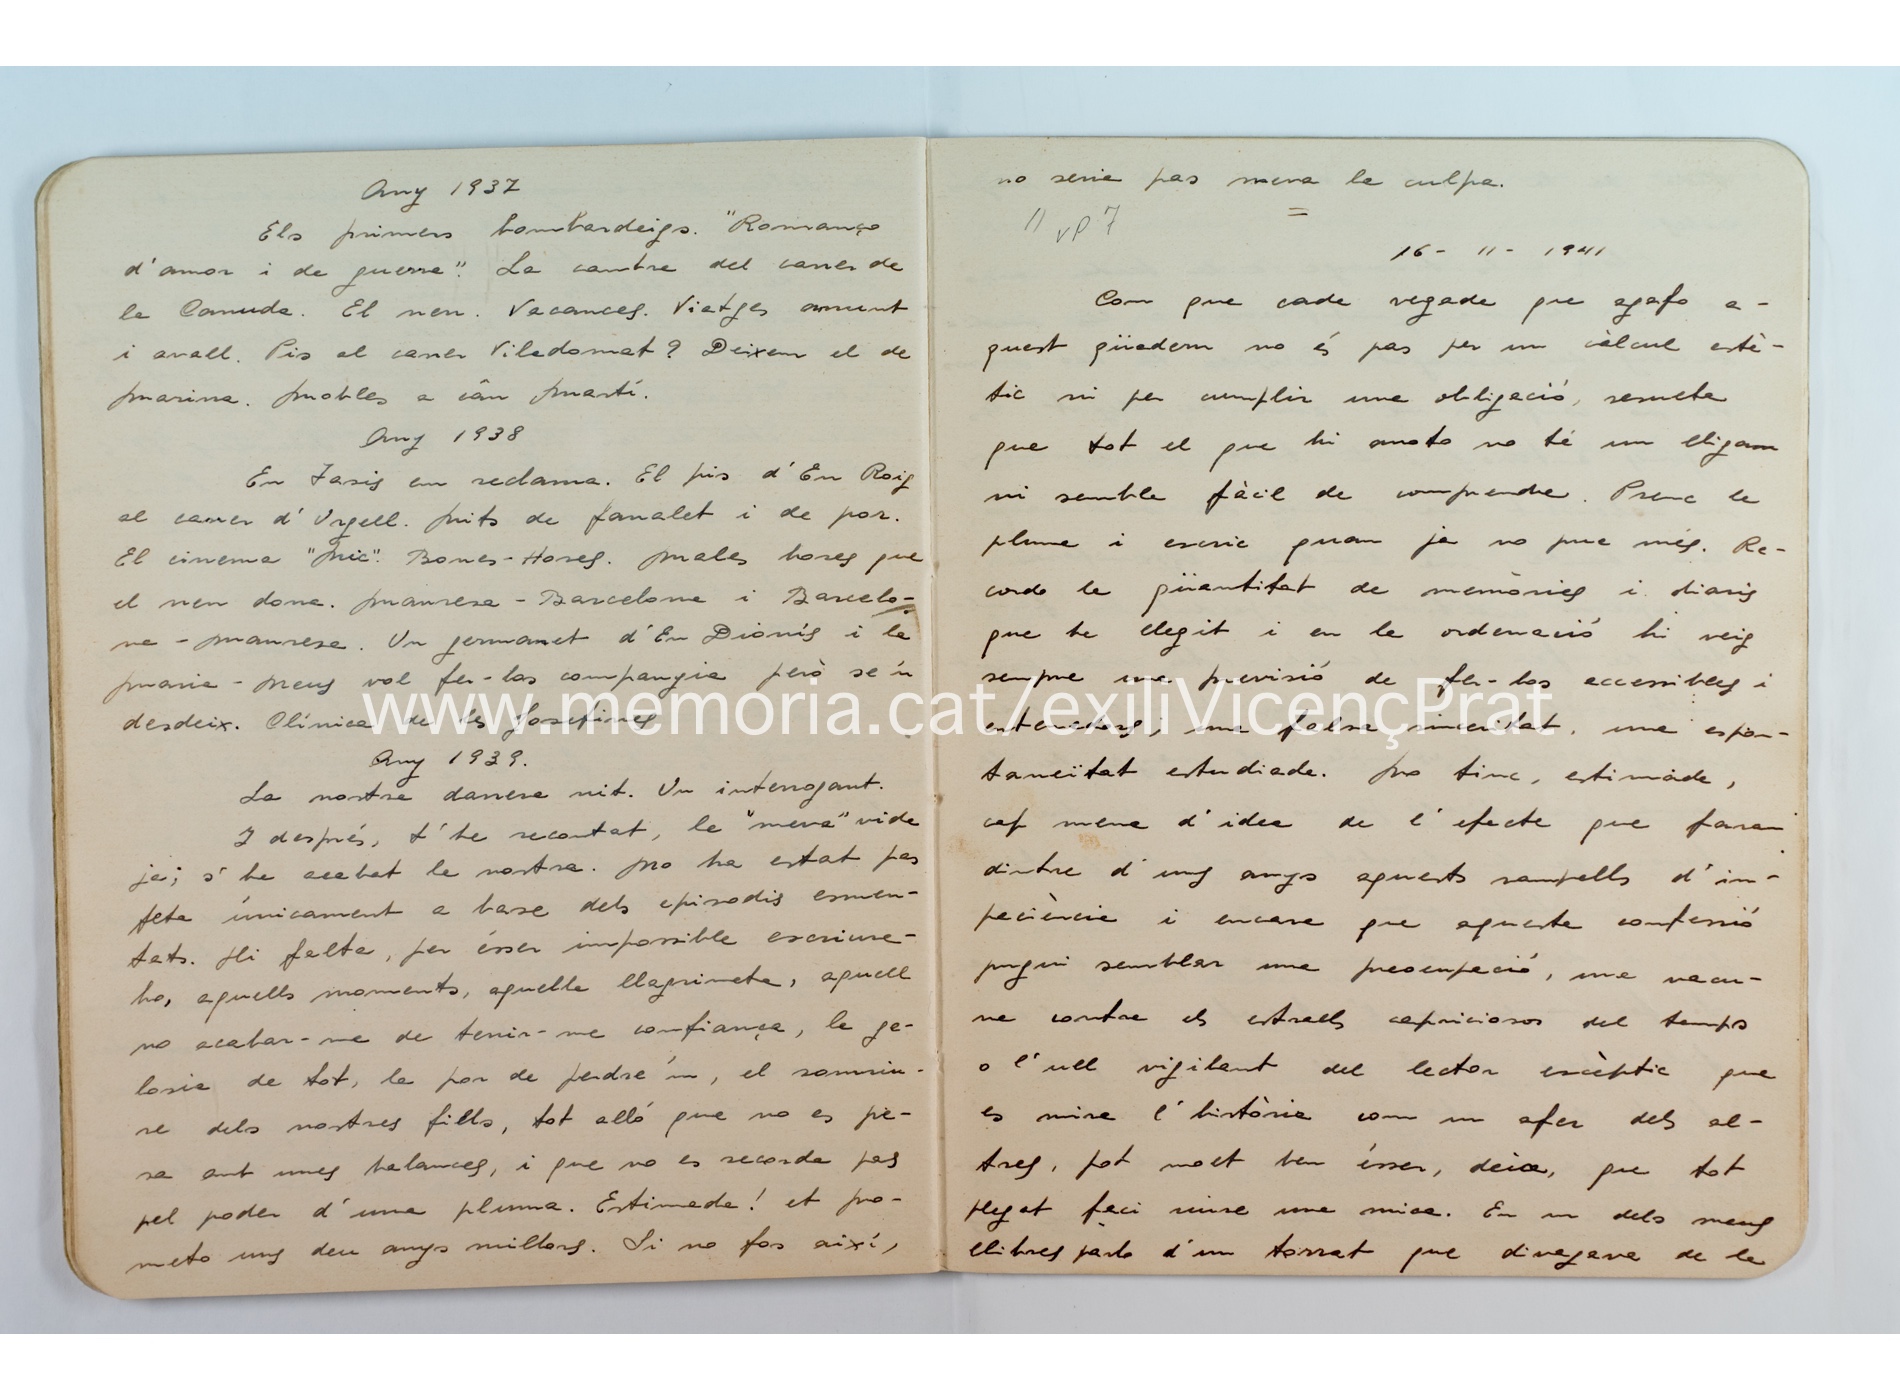 Any 1937
Els primers bombardeigs. "Romanço
d'amor i de guerra". La cambra del carrer de
la Canuda. El nen. Vacances. Viatges amunt
i avall. Pis al carrer Viladomat? Deixem el de
Marina. Mobles a cân Martí.
Any 1938
En Tasis em reclama. El pis d'En Roig
al carrer d'Urgell. Nits de fanalet i de por.
El cinema "Mic". Bones-Hores. Males hores que
el nen dona. Manresa - Barcelona i Barcelo-
na - Manresa. Un germanet d'En Dionís i la
Maria - Neus vol fer-los companyia però se'n
desdeix. Clínica de les Josefines
Any 1939.
La nostra darrera nit. Un interrogant.
I després, t'he recontat, la "meva" vida
ja; s'ha acabat la nostra. No ha estat pas
feta únicament a base dels episodis esmen-
tats. Hi falta, per ésser impossible escriure-
ho, aquells moments, aquella llagrimeta, aquell
no acabar-me de tenir-me confiança, la ge-
losia de tot, la por de perdre'm, el somriu-
re dels nostres fills, tot alló que no es pe-
sa amb unes balances, i que no es recorda pas
pel poder d'una pluma. Estimada! et pro-
meto uns deu anys millors. Si no fos així,
no seria pas meva la culpa.
=
11 vP 7
16 - 11 - 1941
Com que cada vegada que agafo a-
quest qüadern no és pas per un càlcul estè-
tic ni per cumplir una obligació, resulta
que tot el que hi anoto no té un lligam
ni sembla fàcil de comprendre. Prenc la
pluma i escric quan ja no puc més. Re-
cordo la qüantitat de memòries i diaris
que he llegit i en la ordenació hi veig
sempre una previsió de fer-los accessibles i
entenedors; una falsa sinceritat, una espon-
taneïtat estudiada. No tinc, estimada,
cap mena d'idea de l'efecte que faran
dintre d'uns anys aquests rampells d'im-
paciència i encara que aquesta confessió
pugui semblar una preocupació, una vacu-
na contra els estralls capriciosos del temps
o l'ull vigilant del lector escèptic que
es mira l'història com un afer dels al-
tres, pot molt ben ésser, deia, que tot
plegat faci riure una mica. En un dels meus
llibres parlo d'un torrat que divagava de la